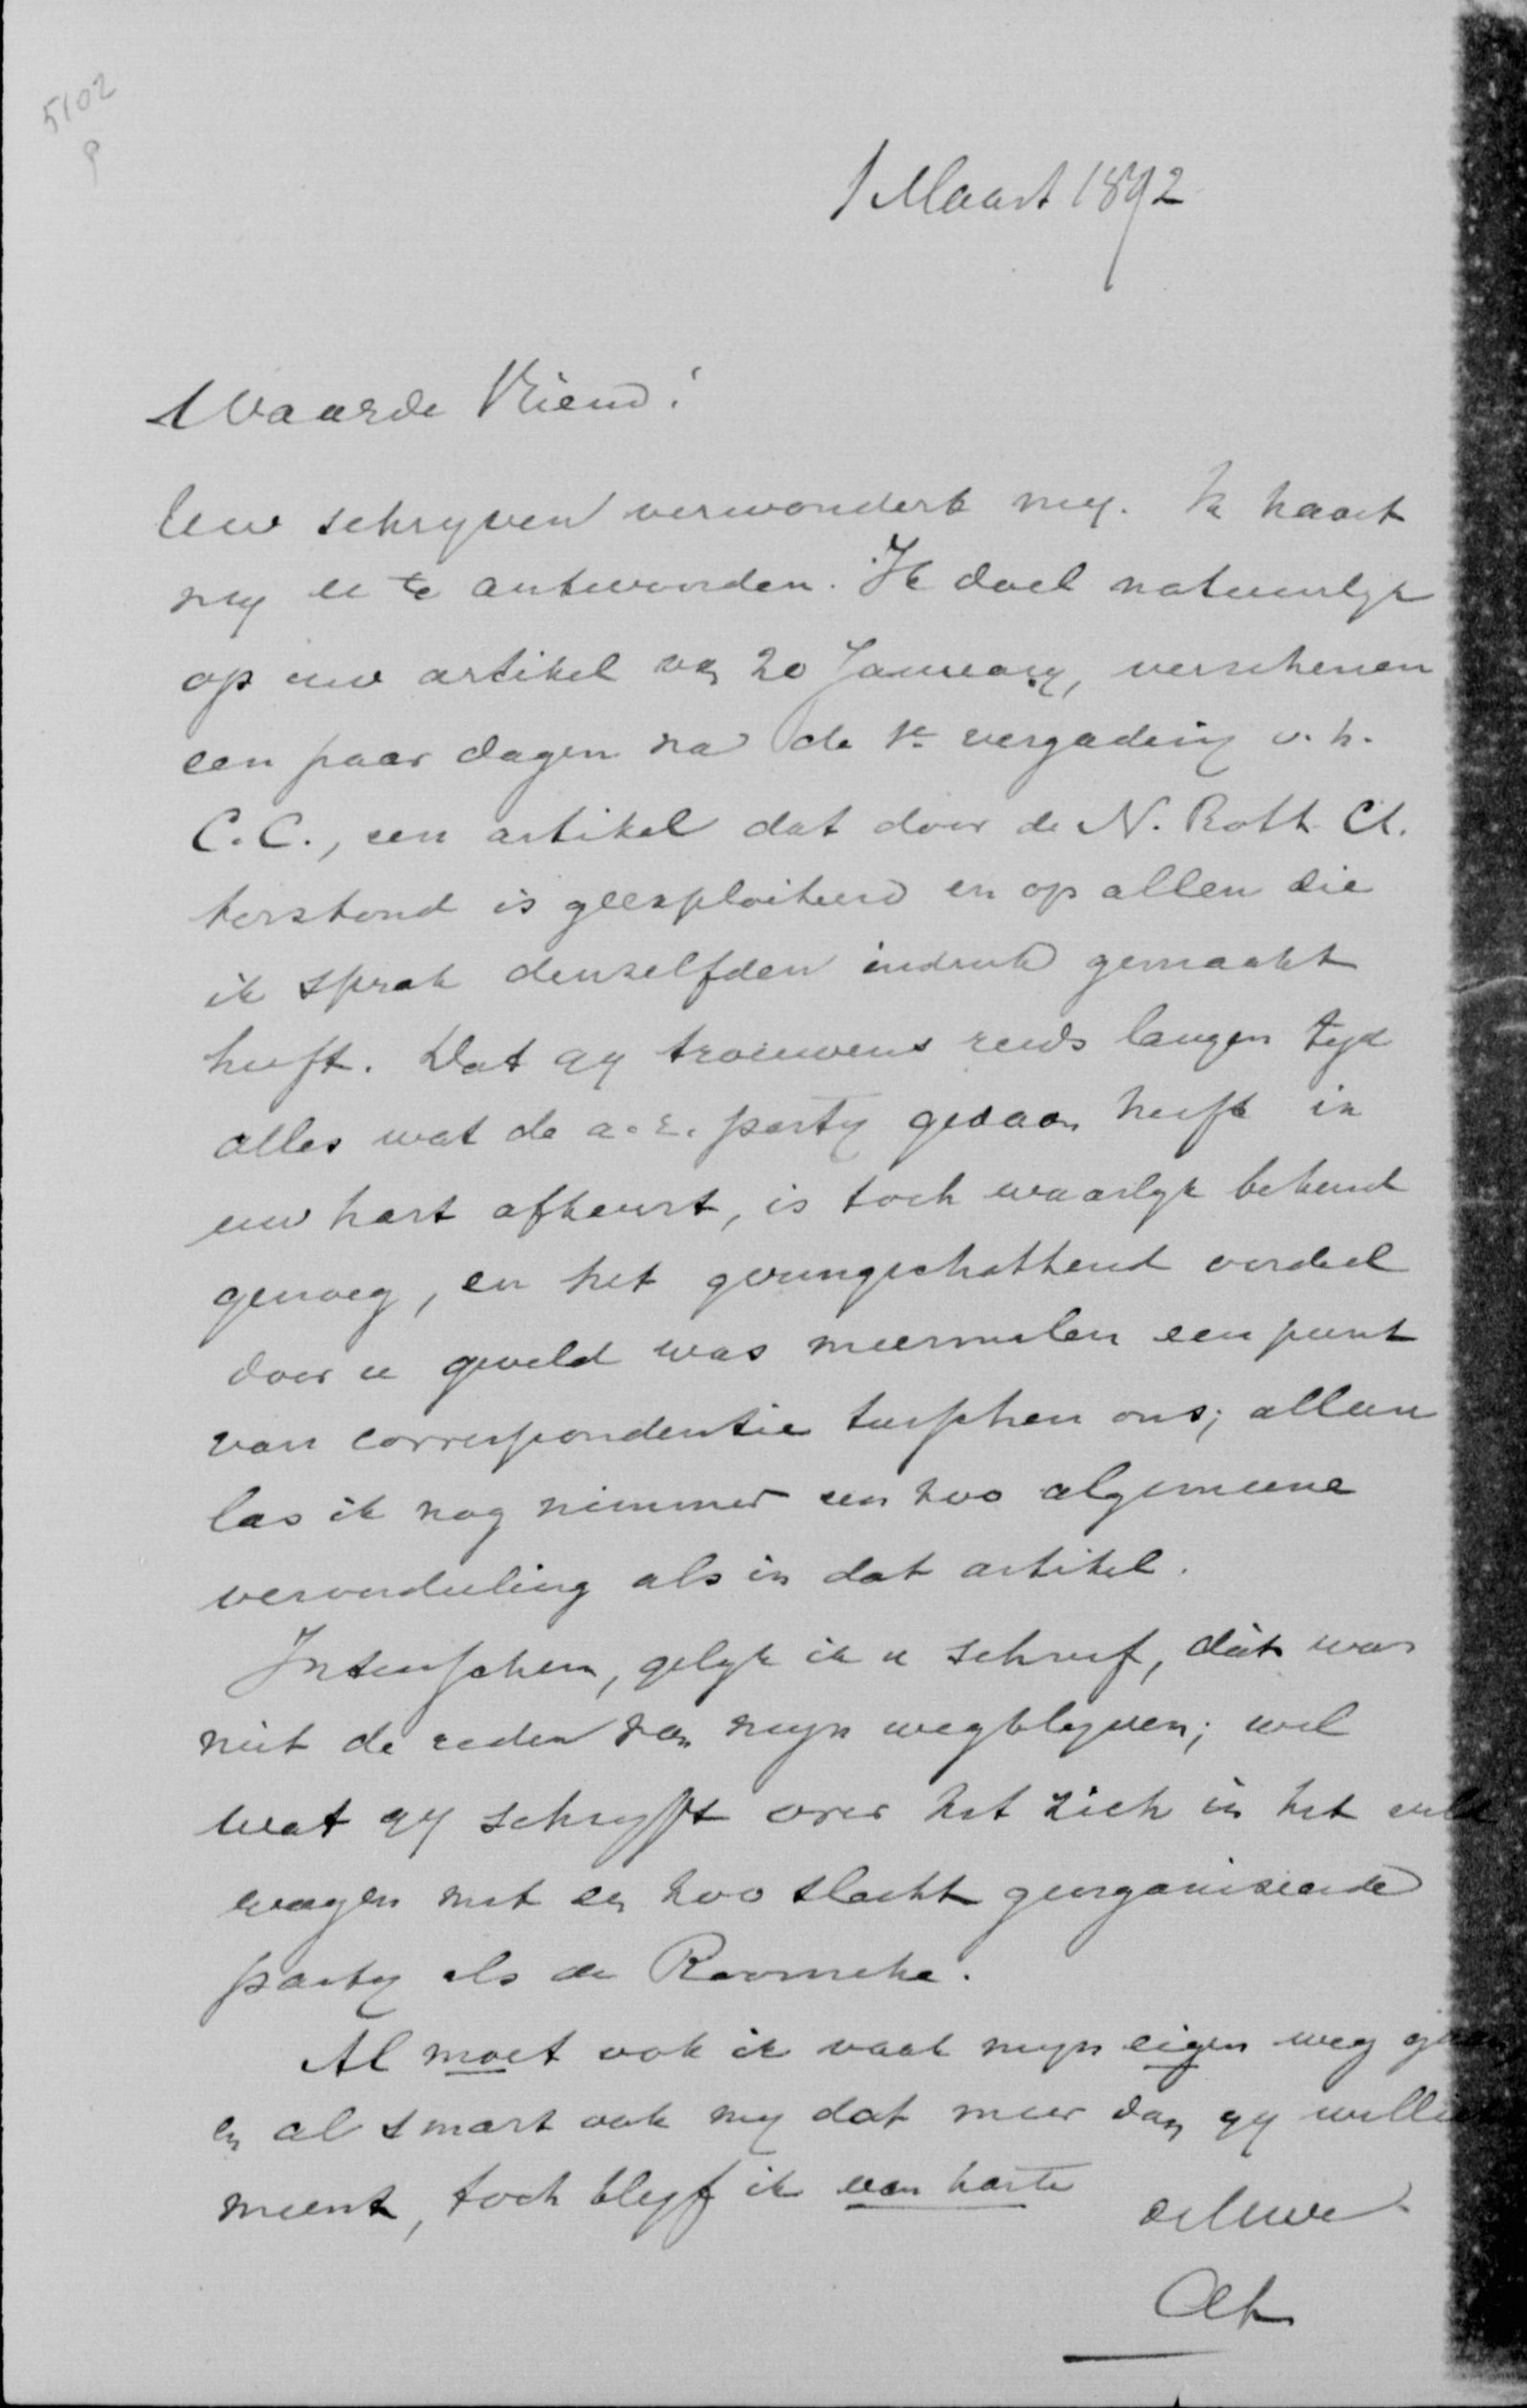 5102
P
1 Maart 1892
Waarde Vriend!
Uw schryven verwondert my. Ik haast
my u te antwoorden. Ik doel natuurlyk
op uw artikel van 20 January, verschenen
een paar dagen na de 1e vergadering v. h.
C. C., een artikel dat door de N. Rott. Ct.
terstond is geexploiteerd en op allen die
ik sprak denzelfden indruk gemaakt
heeft. Dat gy trouwens reeds langen tyd
alles wat de a.r. party gedaan heeft in
uw hart afkeurt, is toch waarlyk bekend
genoeg, en het geringschattend oordeel
door u geveld was meermalen een punt
van correspondentie tusschen ons; alleen
las ik nog nimmer een zoo algemeene
veroordeeling als in dat artikel.
Intusschen, gelyk ik u schreef, dát was
niet de reden van myn wegblyven; wel
wat gy schryft over het zich in het veld
wagen met een zoo slecht georganiseerde
party als de Roomsche.
Al moet ook ik vaak myn eigen weg gaan
en al smart ook my dat meer dan gy wellicht
meent, toch blyf ik van harte
de Uwe